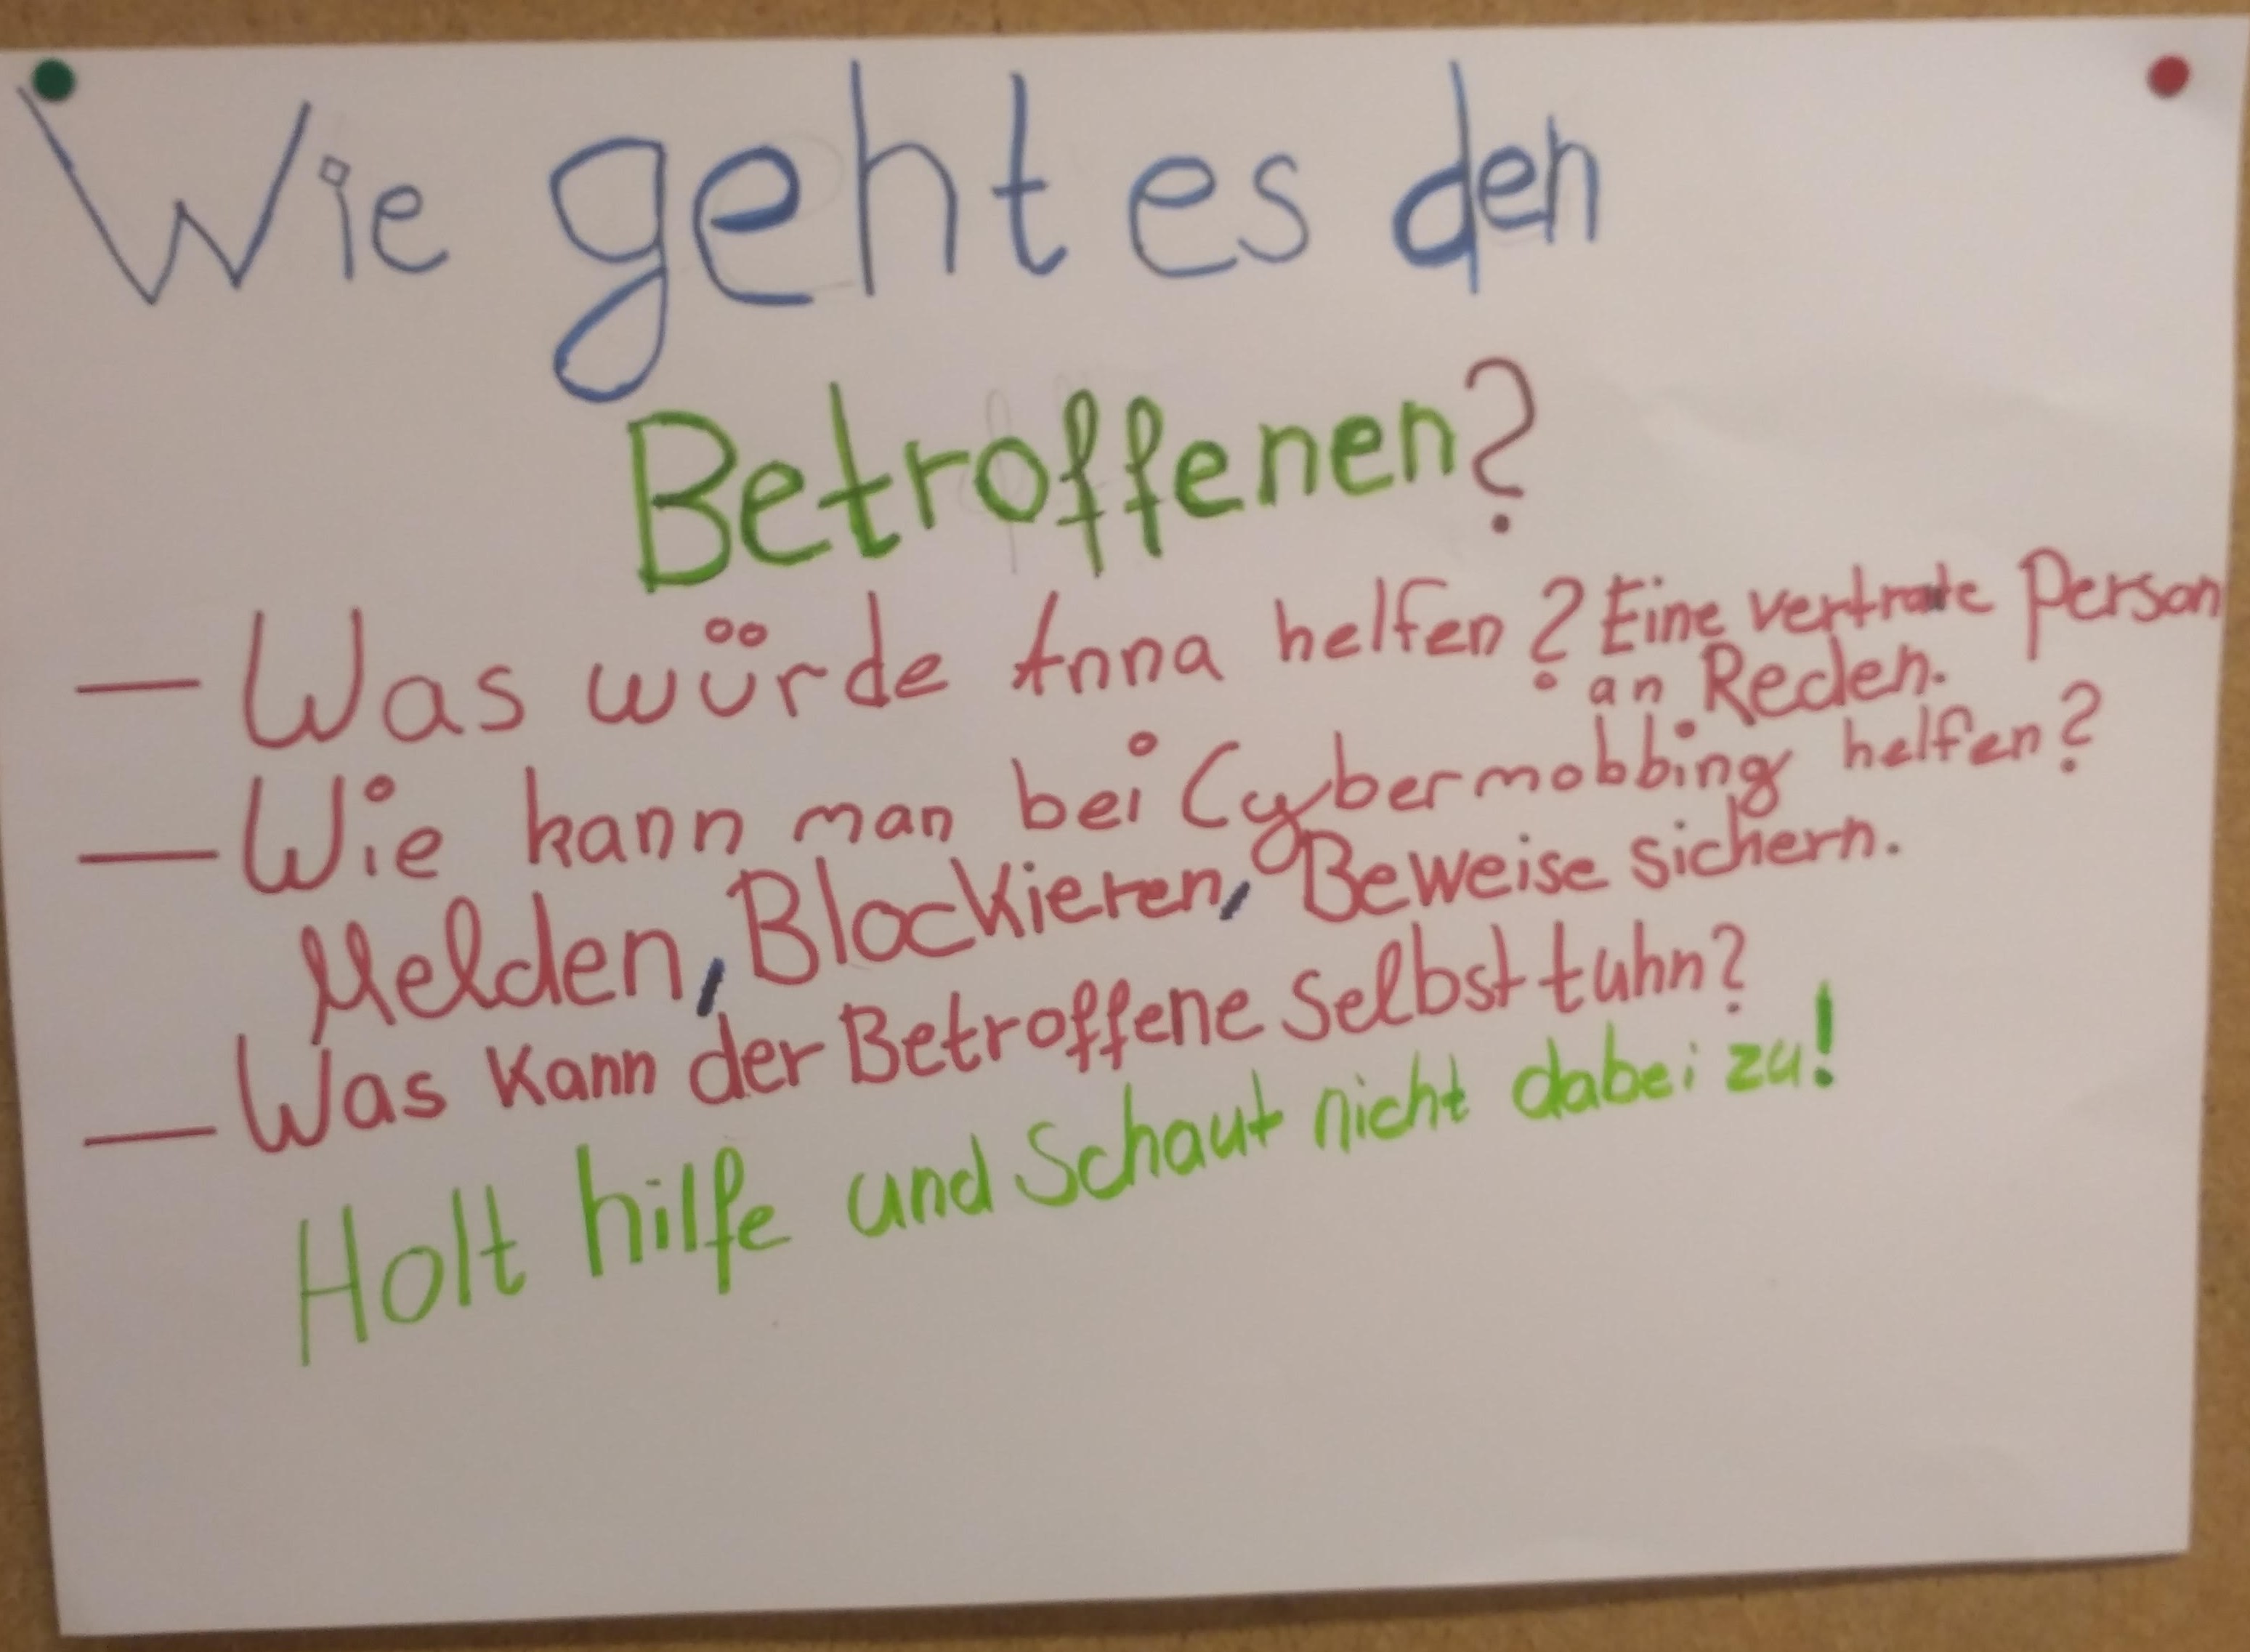 Wie geht es den
Betroffenen?
— Was würde Anna helfen? Eine vertrate Person
an Reden.
— Wie kann man bei Cybermobbing helfen?
Melden, Blockieren, Beweise sichern.
— Was kann der Betroffene selbst tuhn?
Holt hilfe und Schaut nicht dabei zu!